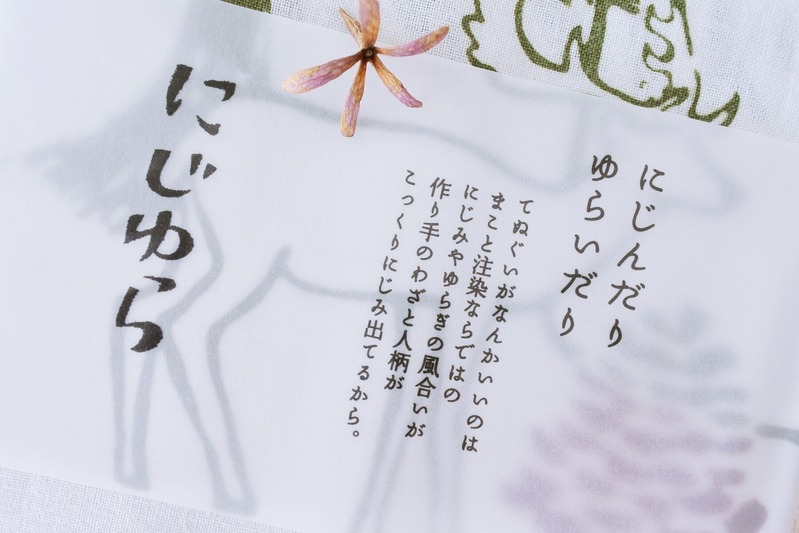 にじんだり
ゆらいだり
てぬぐいがなんかいいのは
まこと注染ならではの
にじみやゆらぎの風合いが
作り手のわざと人柄が
こっくりにじみ出てるから。
にじゆら